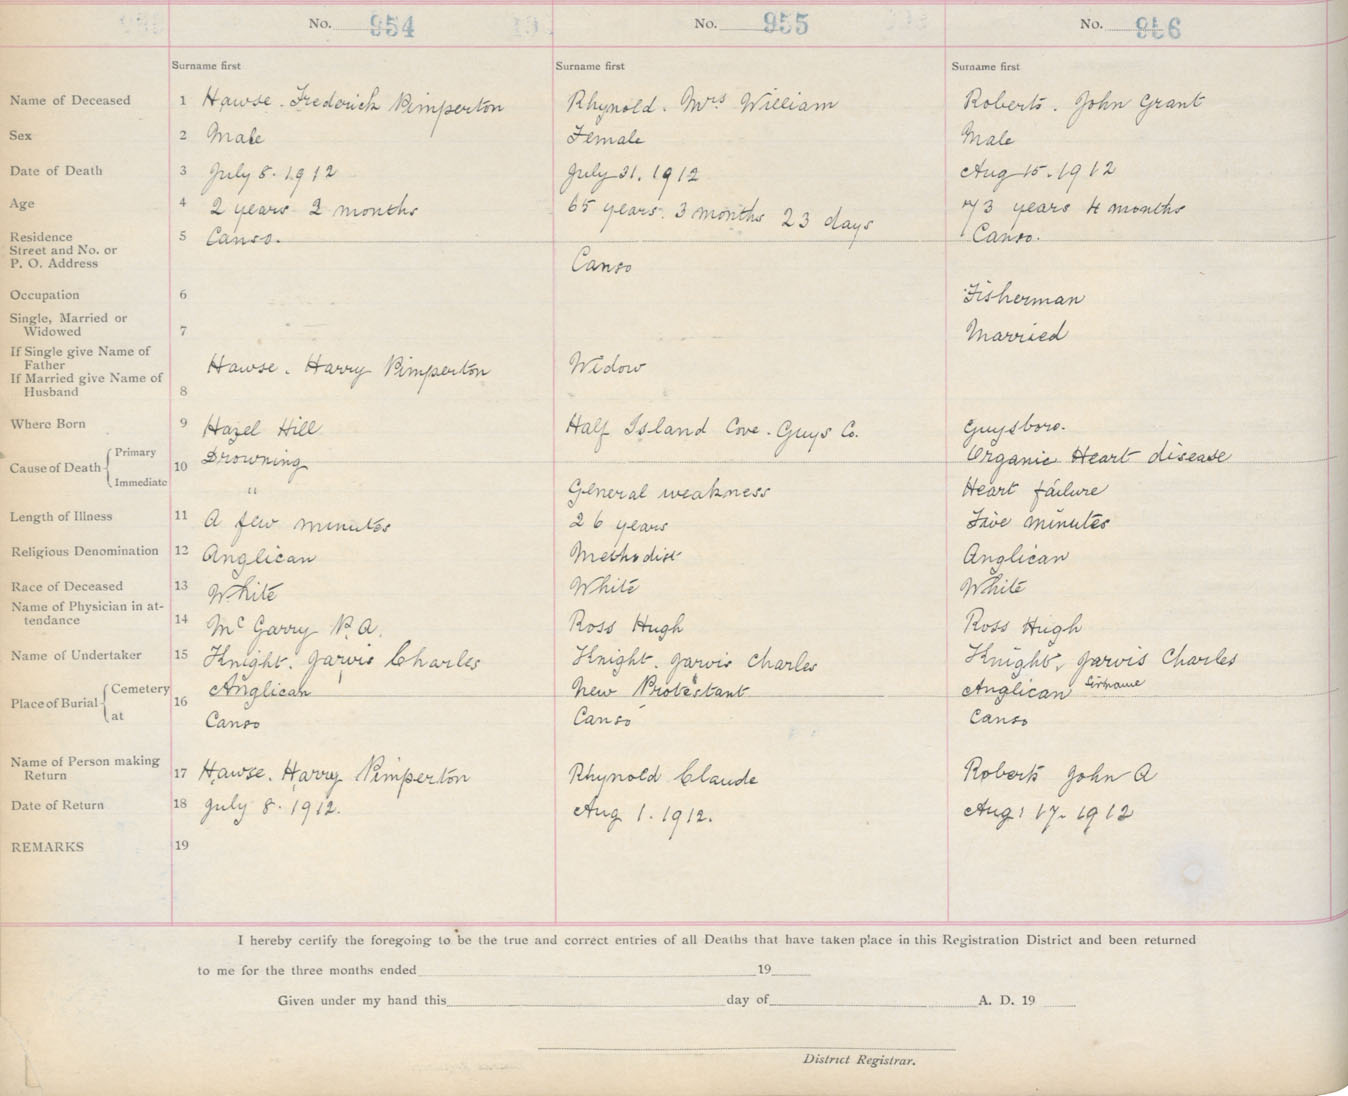 No. 954 No. 955 No. 956
Surname first Surname first Surname first
Name of Deceased 1 Hawse. Frederick Pimperton Rhynold. Mrs William Roberts. John Grant
Sex 2 Male Female Male
Date of Death 3 July 8. 1912 July 31. 1912 Aug 15. 1912
Age 4 2 years 2 months 65 years. 3 months 23 days 73 years 4 months
Residence 5 Canso. Canso.
Street and No. or
P. O. Address Canso
Occupation 6 Fisherman
Single, Married or
Widowed 7 Married
If Single give Name of
Father Hawse. Harry Pimperton Widow
If Married give Name of
Husband 8
Where Born 9 Hazel Hill Half Island Cove. Guys Co. Guysboro.
Cause of Death Primary 10 Drowning Organic Heart disease
Immediate " General weakness Heart failure
Length of Illness 11 A few minutes 26 years Five minutes
Religious Denomination 12 Anglican Methodist Anglican
Race of Deceased 13 White White White
Name of Physician in at-
tendance 14 Mc Garry P. A. Ross Hugh Ross Hugh
Name of Undertaker 15 Knight. Jarvis Charles Knight. Jarvis Charles Knight. Jarvis Charles
Place of Burial Cemetery 16 Anglican New Protestant Anglican
at Canso Canso Canso
Name of Person making
Return 17 Hawse. Harry Pimperton Rhynold Claude Roberts John A
Date of Return 18 July 8. 1912. Aug 1. 1912. Aug. 17. 1912
REMARKS 19
I hereby certify the foregoing to be the true and correct entries of all Deaths that have taken place in this Registration District and been returned
to me for the three months ended 19
Given under my hand this day of A. D. 19
District Registrar.